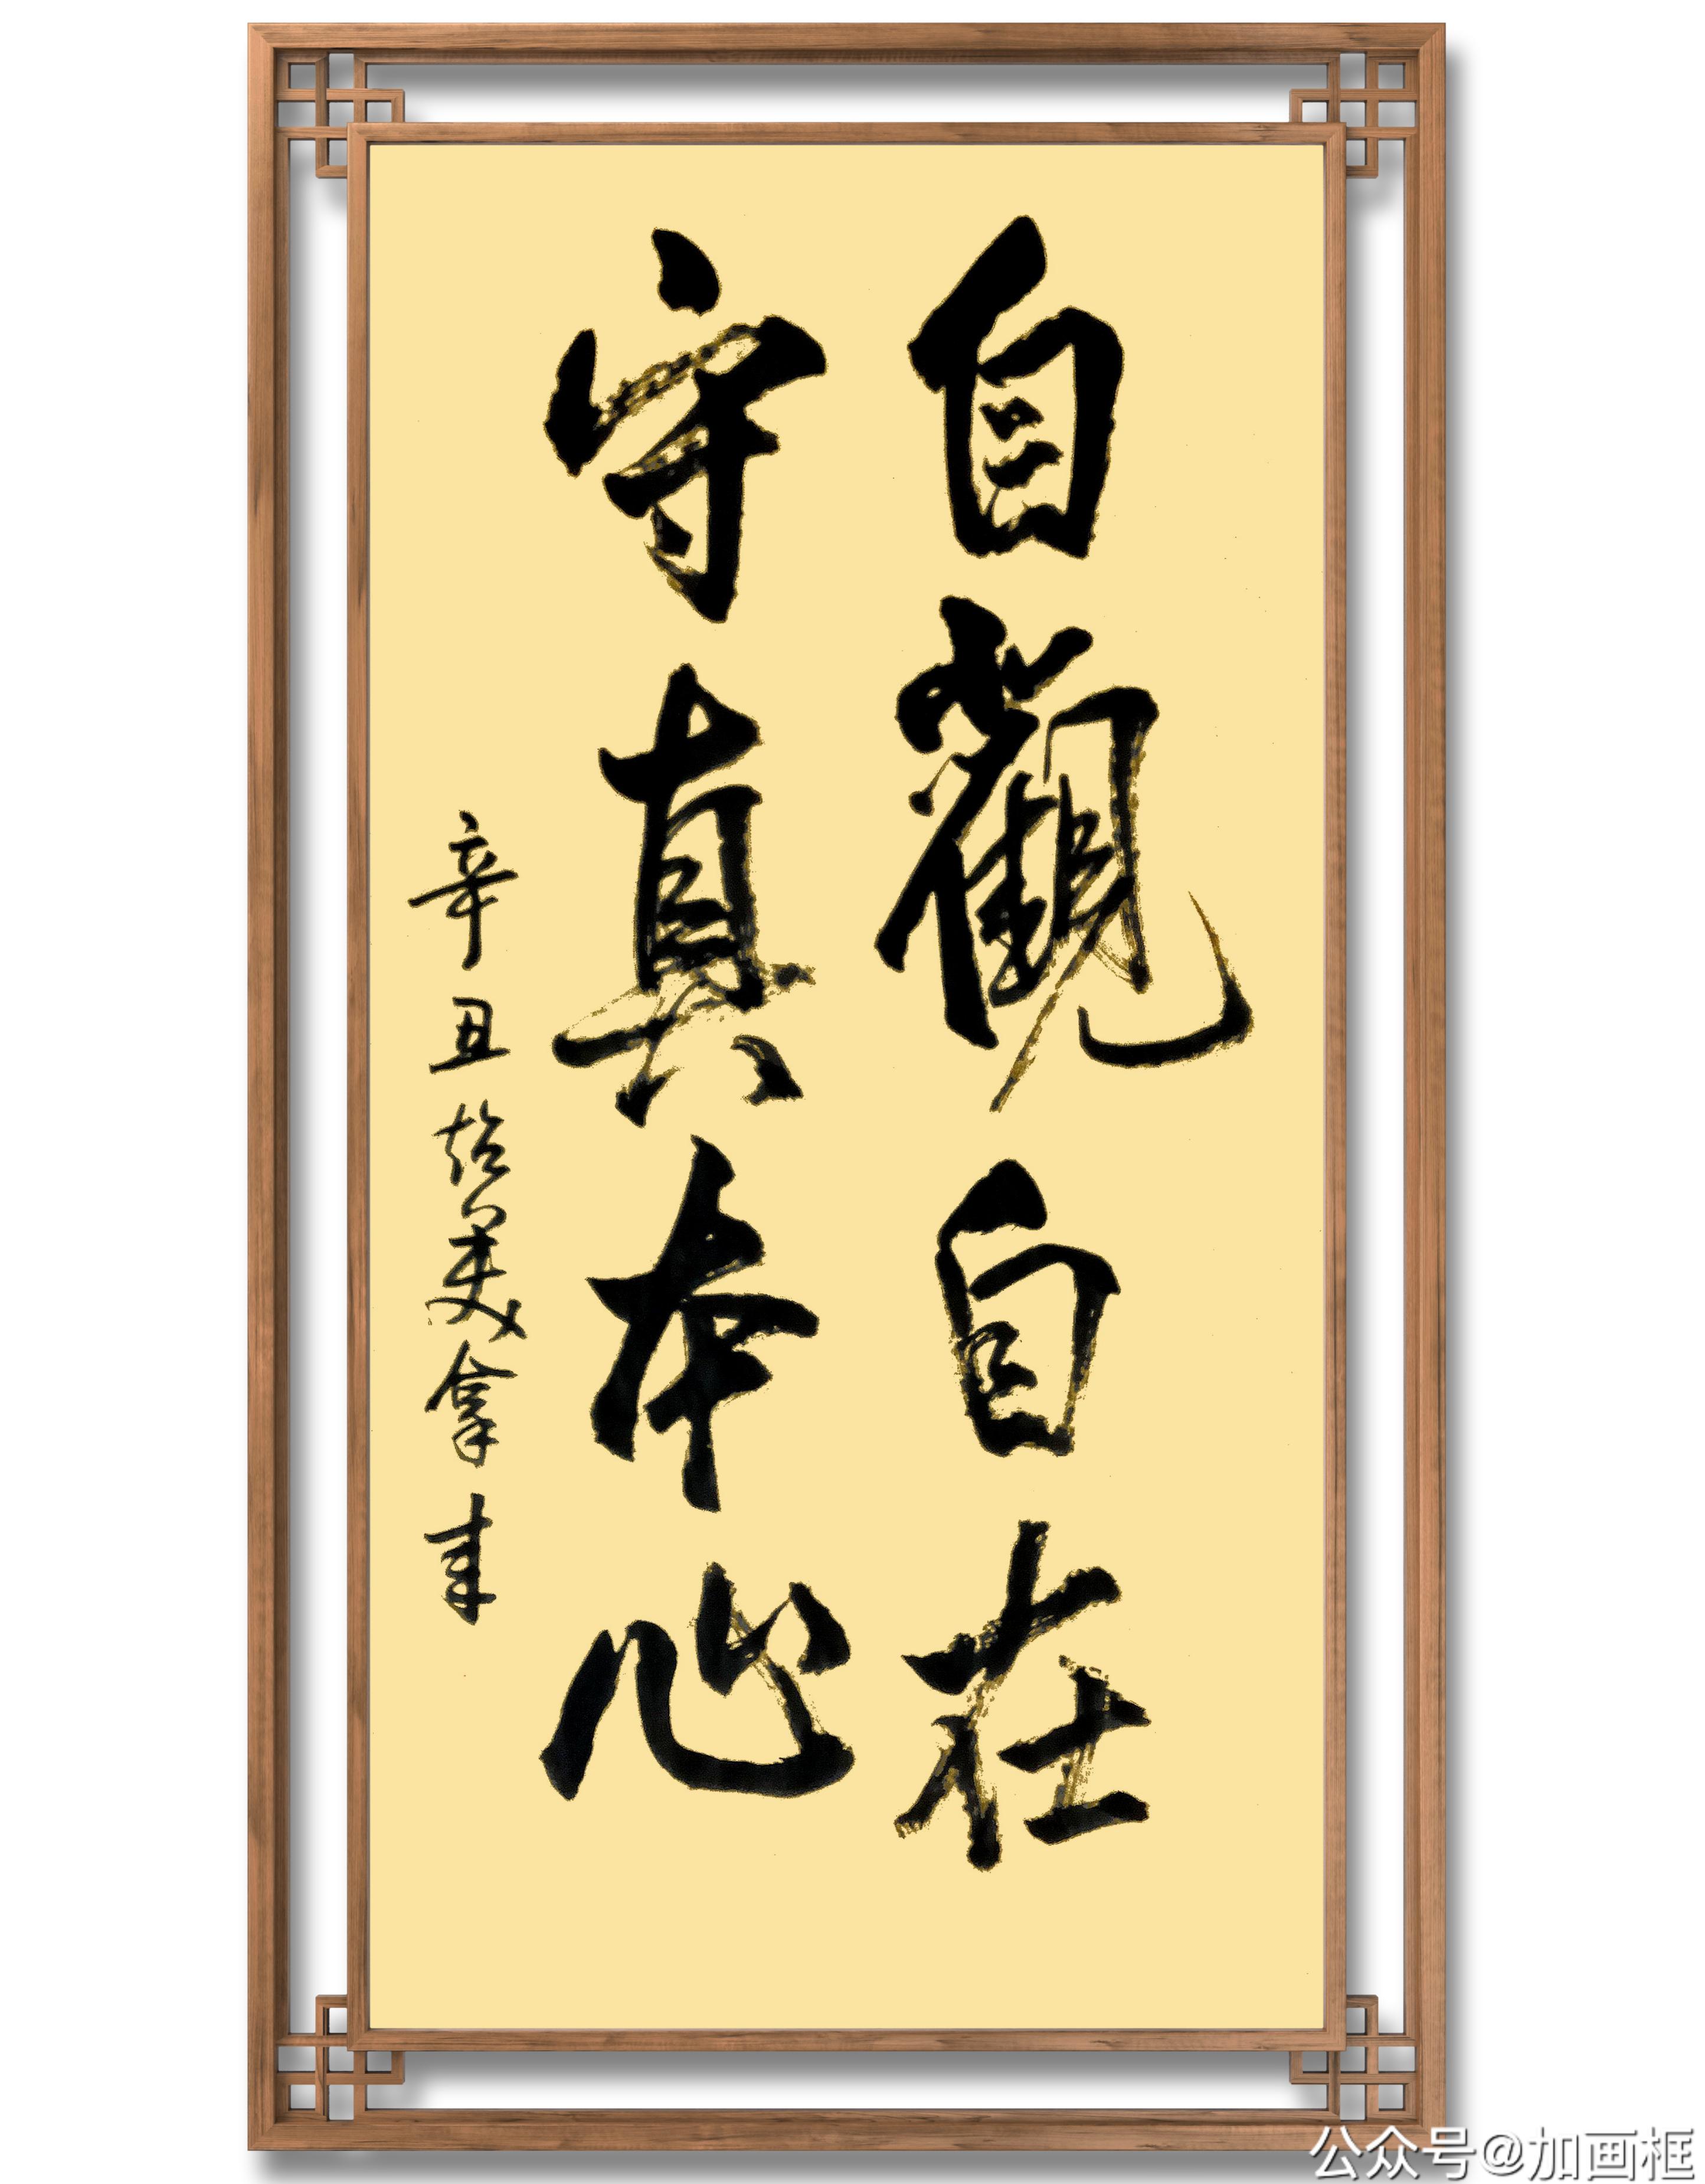 自觀自在
守真本心
辛丑
拿来
公众号@加画框